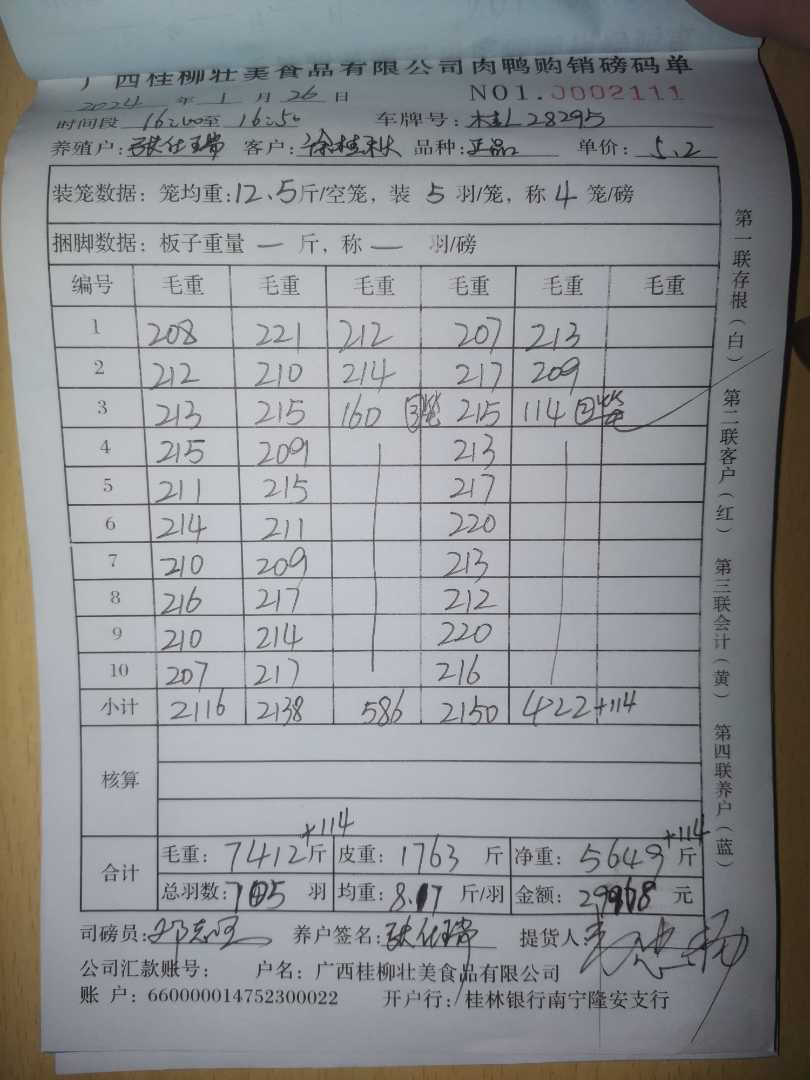 广西桂柳壮美食品有限公司肉鸭购销磅码单
2024 年 1 月 26 日 NO1.0002111
时间段 16:00至 16:50 车牌号: 桂L28295
养殖户: 张仕瑞 客户: 徐桂秋 品种: 正品 单价: 5.2
装笼数据: 笼均重:12.5斤/空笼, 装 5 羽/笼, 称 4 笼/磅
捆脚数据: 板子重量 一 斤, 称 一 羽/磅
编号 毛重 毛重 毛重 毛重 毛重 毛重
1 208 221 212 207 213
2 212 210 214 217 209
3 213 215 160 ③笼 215 114 ②笼
4 215 209 213
5 211 215 217
6 214 211 220
7 210 209 213
8 216 217 212
9 210 214 220
10 207 217 216
小计 2116 2138 586 2150 422+114
核算
合计 毛重: 7412+114斤 皮重: 1763 斤 净重: 5649+114斤
总羽数: 705 羽 均重: 8.17 斤/羽 金额: 29968 元
司磅员: 养户签名: 张仕瑞 提货人:
公司汇款账号: 户名: 广西桂柳壮美食品有限公司
账 户: 660000014752300022 开户行: 桂林银行南宁隆安支行
第一联存根(白) 第二联客户(红) 第三联会计(黄) 第四联养户(蓝)